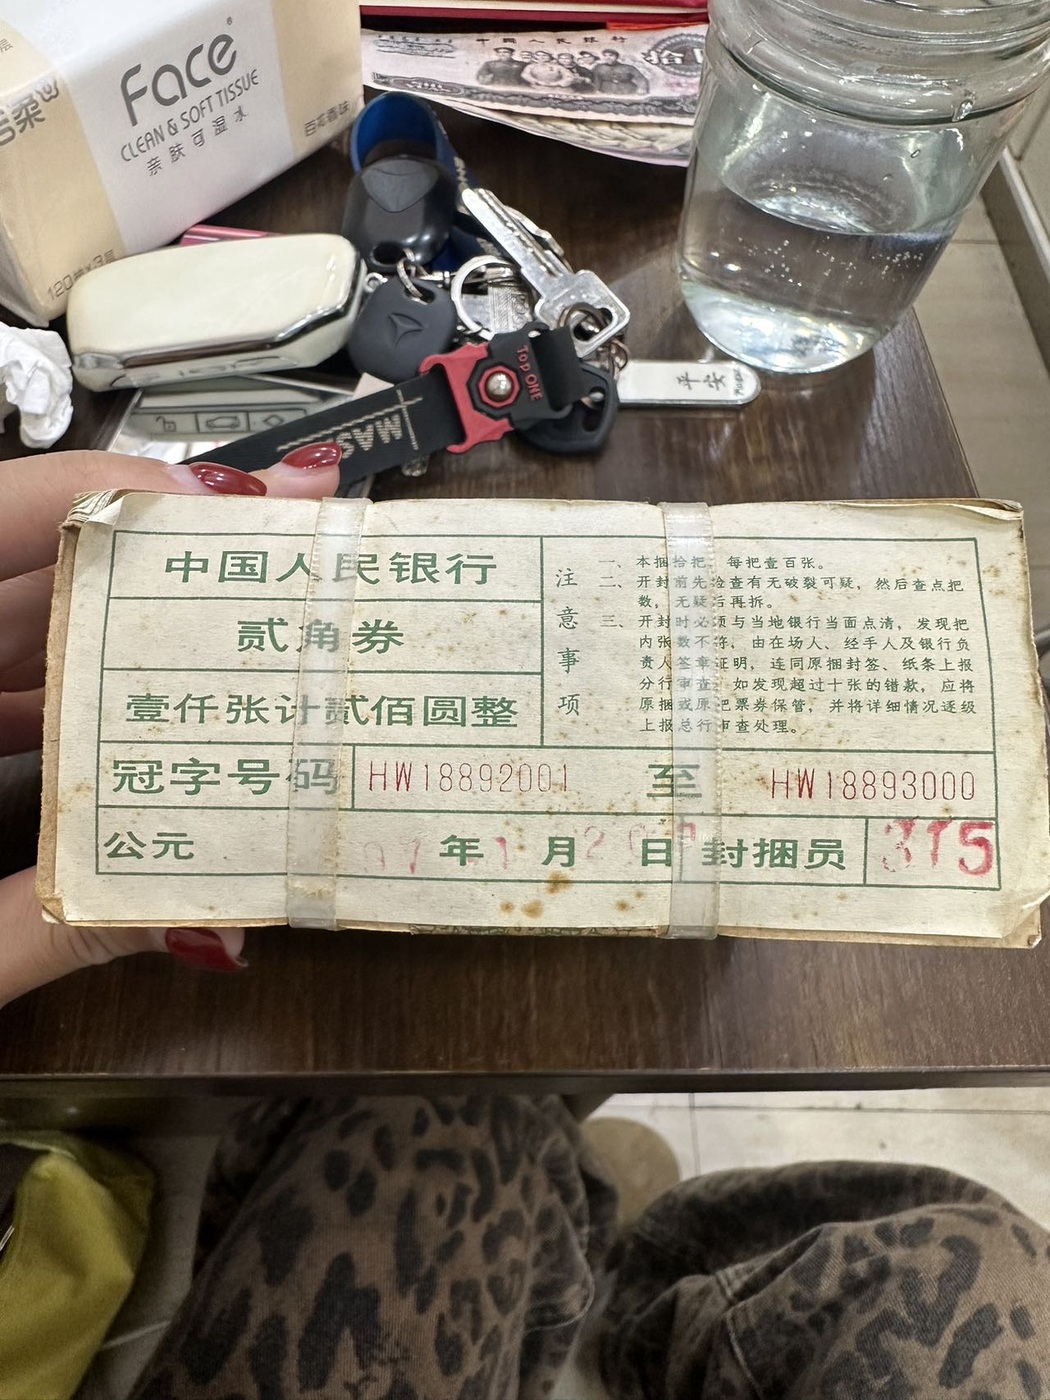 Face
CLEAN & SOFT TISSUE
亲肤可湿水
百花香味
中国人民银行
拾
TOP ONE
MAS
平安
中国人民银行
贰角券
壹仟张计贰佰圆整
注意事项
一、本捆拾把，每把壹百张。
二、开封前先检查有无破裂可疑，然后查点把
数，无疑后再拆。
三、开封时必须与当地银行当面点清，发现把
内张数不符，由在场人、经手人及银行负
责人签章证明，连同原捆封签、纸条上报
分行审查。如发现超过十张的错款，应将
原捆或原把票券保管，并将详细情况逐级
上报总行审查处理。
冠字号码 HW18892001 至 HW18893000
公元 年 月 日 封捆员 375